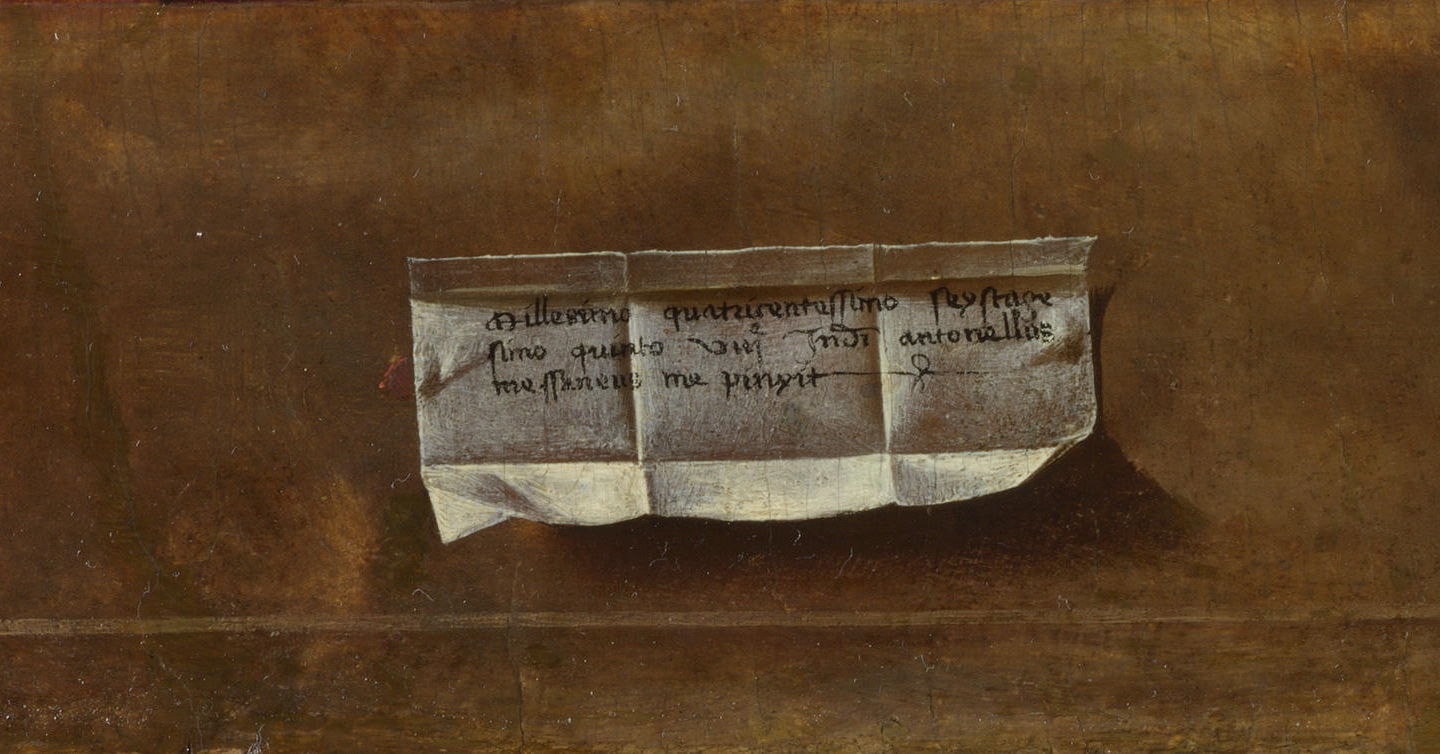 Millesimo quatricentessimo seystage
simo quinto viij Indi antonellus
messaneus me pinxit